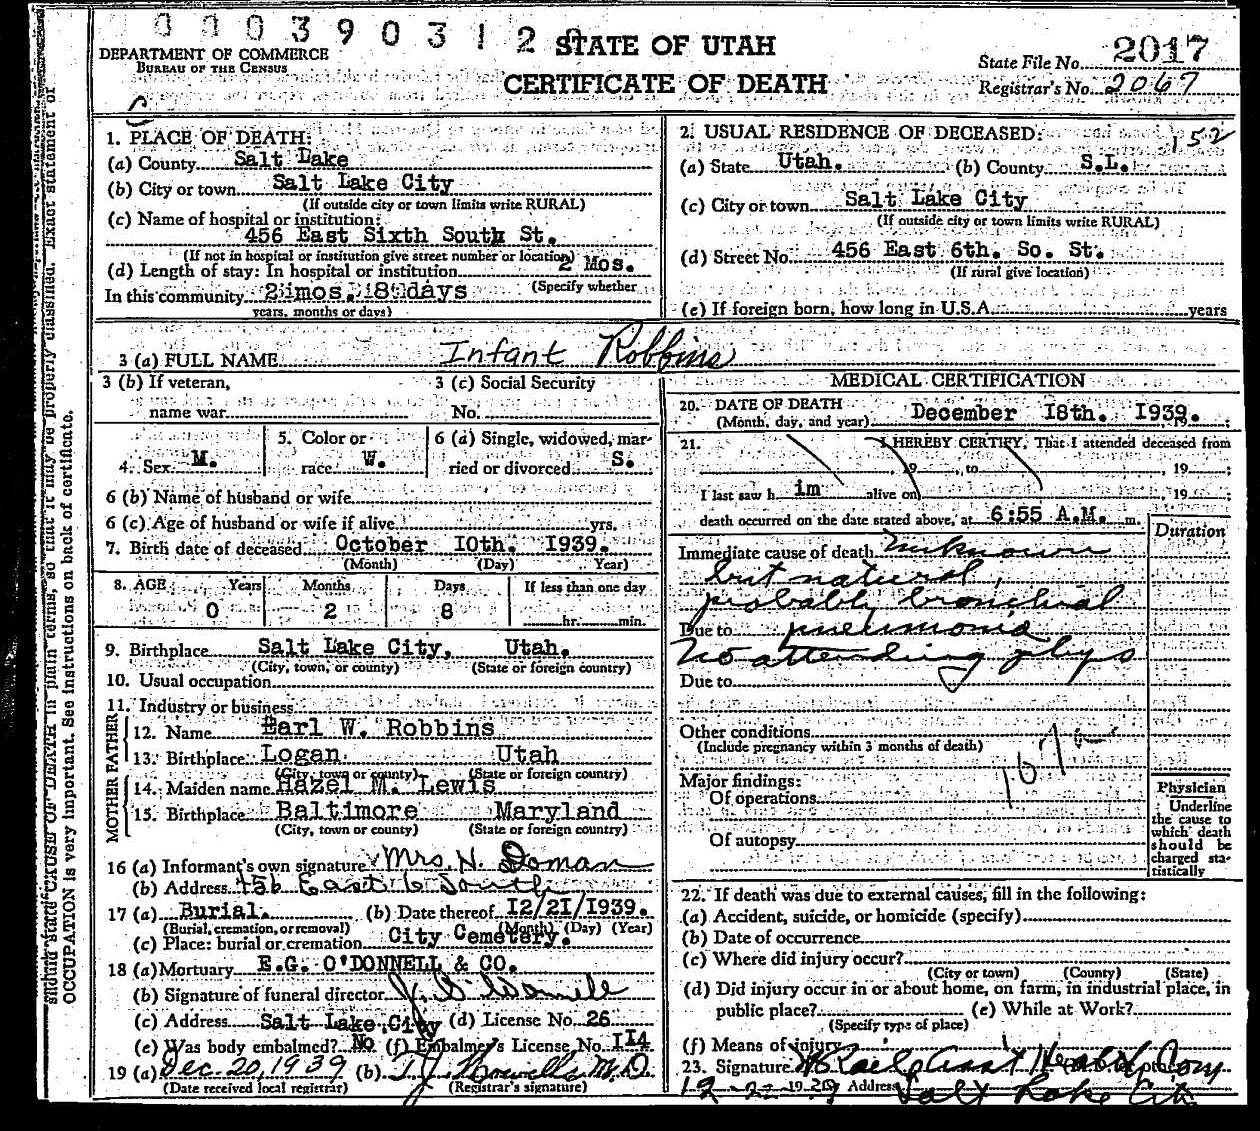 0 0 0 3 9 0 3 1 2
STATE OF UTAH
CERTIFICATE OF DEATH
DEPARTMENT OF COMMERCE
BUREAU OF THE CENSUS
State File No. 2017
Registrar's No. 2067
152
1. PLACE OF DEATH:
(a) County Salt Lake
(b) City or town Salt Lake City
(If outside city or town limits write RURAL)
(c) Name of hospital or institution:
456 East Sixth South St.
(If not in hospital or institution give street number or location)
(d) Length of stay: In hospital or institution 2 Mos.
(Specify whether
In this community 2 mos. 8 days
years, months or days)
2. USUAL RESIDENCE OF DECEASED:
(a) State Utah. (b) County S.L.
(c) City or town Salt Lake City
(If outside city or town limits write RURAL)
(d) Street No. 456 East 6th. So. St.
(If rural give location)
(e) If foreign born, how long in U.S.A. years
3 (a) FULL NAME Infant Robbins
3 (b) If veteran, name war
3 (c) Social Security No.
4. Sex M.
5. Color or race W.
6 (a) Single, widowed, married or divorced S.
6 (b) Name of husband or wife
6 (c) Age of husband or wife if alive yrs.
7. Birth date of deceased October 10th. 1939.
(Month) (Day) Year)
8. AGE Years Months Days If less than one day
0 2 8 hr. min.
9. Birthplace Salt Lake City, Utah.
(City, town, or county) (State or foreign country)
10. Usual occupation
11. Industry or business
FATHER
12. Name Earl W. Robbins
13. Birthplace Logan Utah
(City, town or county) (State or foreign country)
MOTHER
14. Maiden name Hazel M. Lewis
15. Birthplace Baltimore Maryland
(City, town or county) (State or foreign country)
16 (a) Informant's own signature Mrs. N. Doman
(b) Address 456 East 6 South
17 (a) Burial. (b) Date thereof 12/21/1939.
(Burial, cremation, or removal) (Month) (Day) (Year)
(c) Place: burial or cremation City Cemetery.
18 (a) Mortuary E.G. O'DONNELL & CO.
(b) Signature of funeral director
(c) Address Salt Lake City (d) License No. 26
(e) Was body embalmed? No (f) Embalmer's License No. 114
19 (a) Dec. 20, 1939 (b) T.J. Howells M.D.
(Date received local registrar) (Registrar's signature)
MEDICAL CERTIFICATION
20. DATE OF DEATH December 18th. 1939.
(Month, day, and year)
21. I HEREBY CERTIFY, That I attended deceased from
, 19 , to , 19 ;
I last saw h im alive on , 19 ;
death occurred on the date stated above, at 6:55 A.M. m.
Duration
Immediate cause of death Unknown
but natural,
probably bronchial
Due to pneumonia
No attending phys
Due to
Other conditions
(Include pregnancy within 3 months of death)
107
Major findings:
Of operations
Of autopsy
Physician
Underline the cause to which death should be charged statistically
22. If death was due to external causes, fill in the following:
(a) Accident, suicide, or homicide (specify)
(b) Date of occurrence
(c) Where did injury occur?
(City or town) (County) (State)
(d) Did injury occur in or about home, on farm, in industrial place, in
public place? (e) While at Work?
(Specify type of place)
(f) Means of injury
23. Signature Asst Health Com
Address Salt Lake City
should state CAUSE OF DEATH in plain terms, so that it may be properly classified. Exact statement of
OCCUPATION is very important. See instructions on back of certificate.